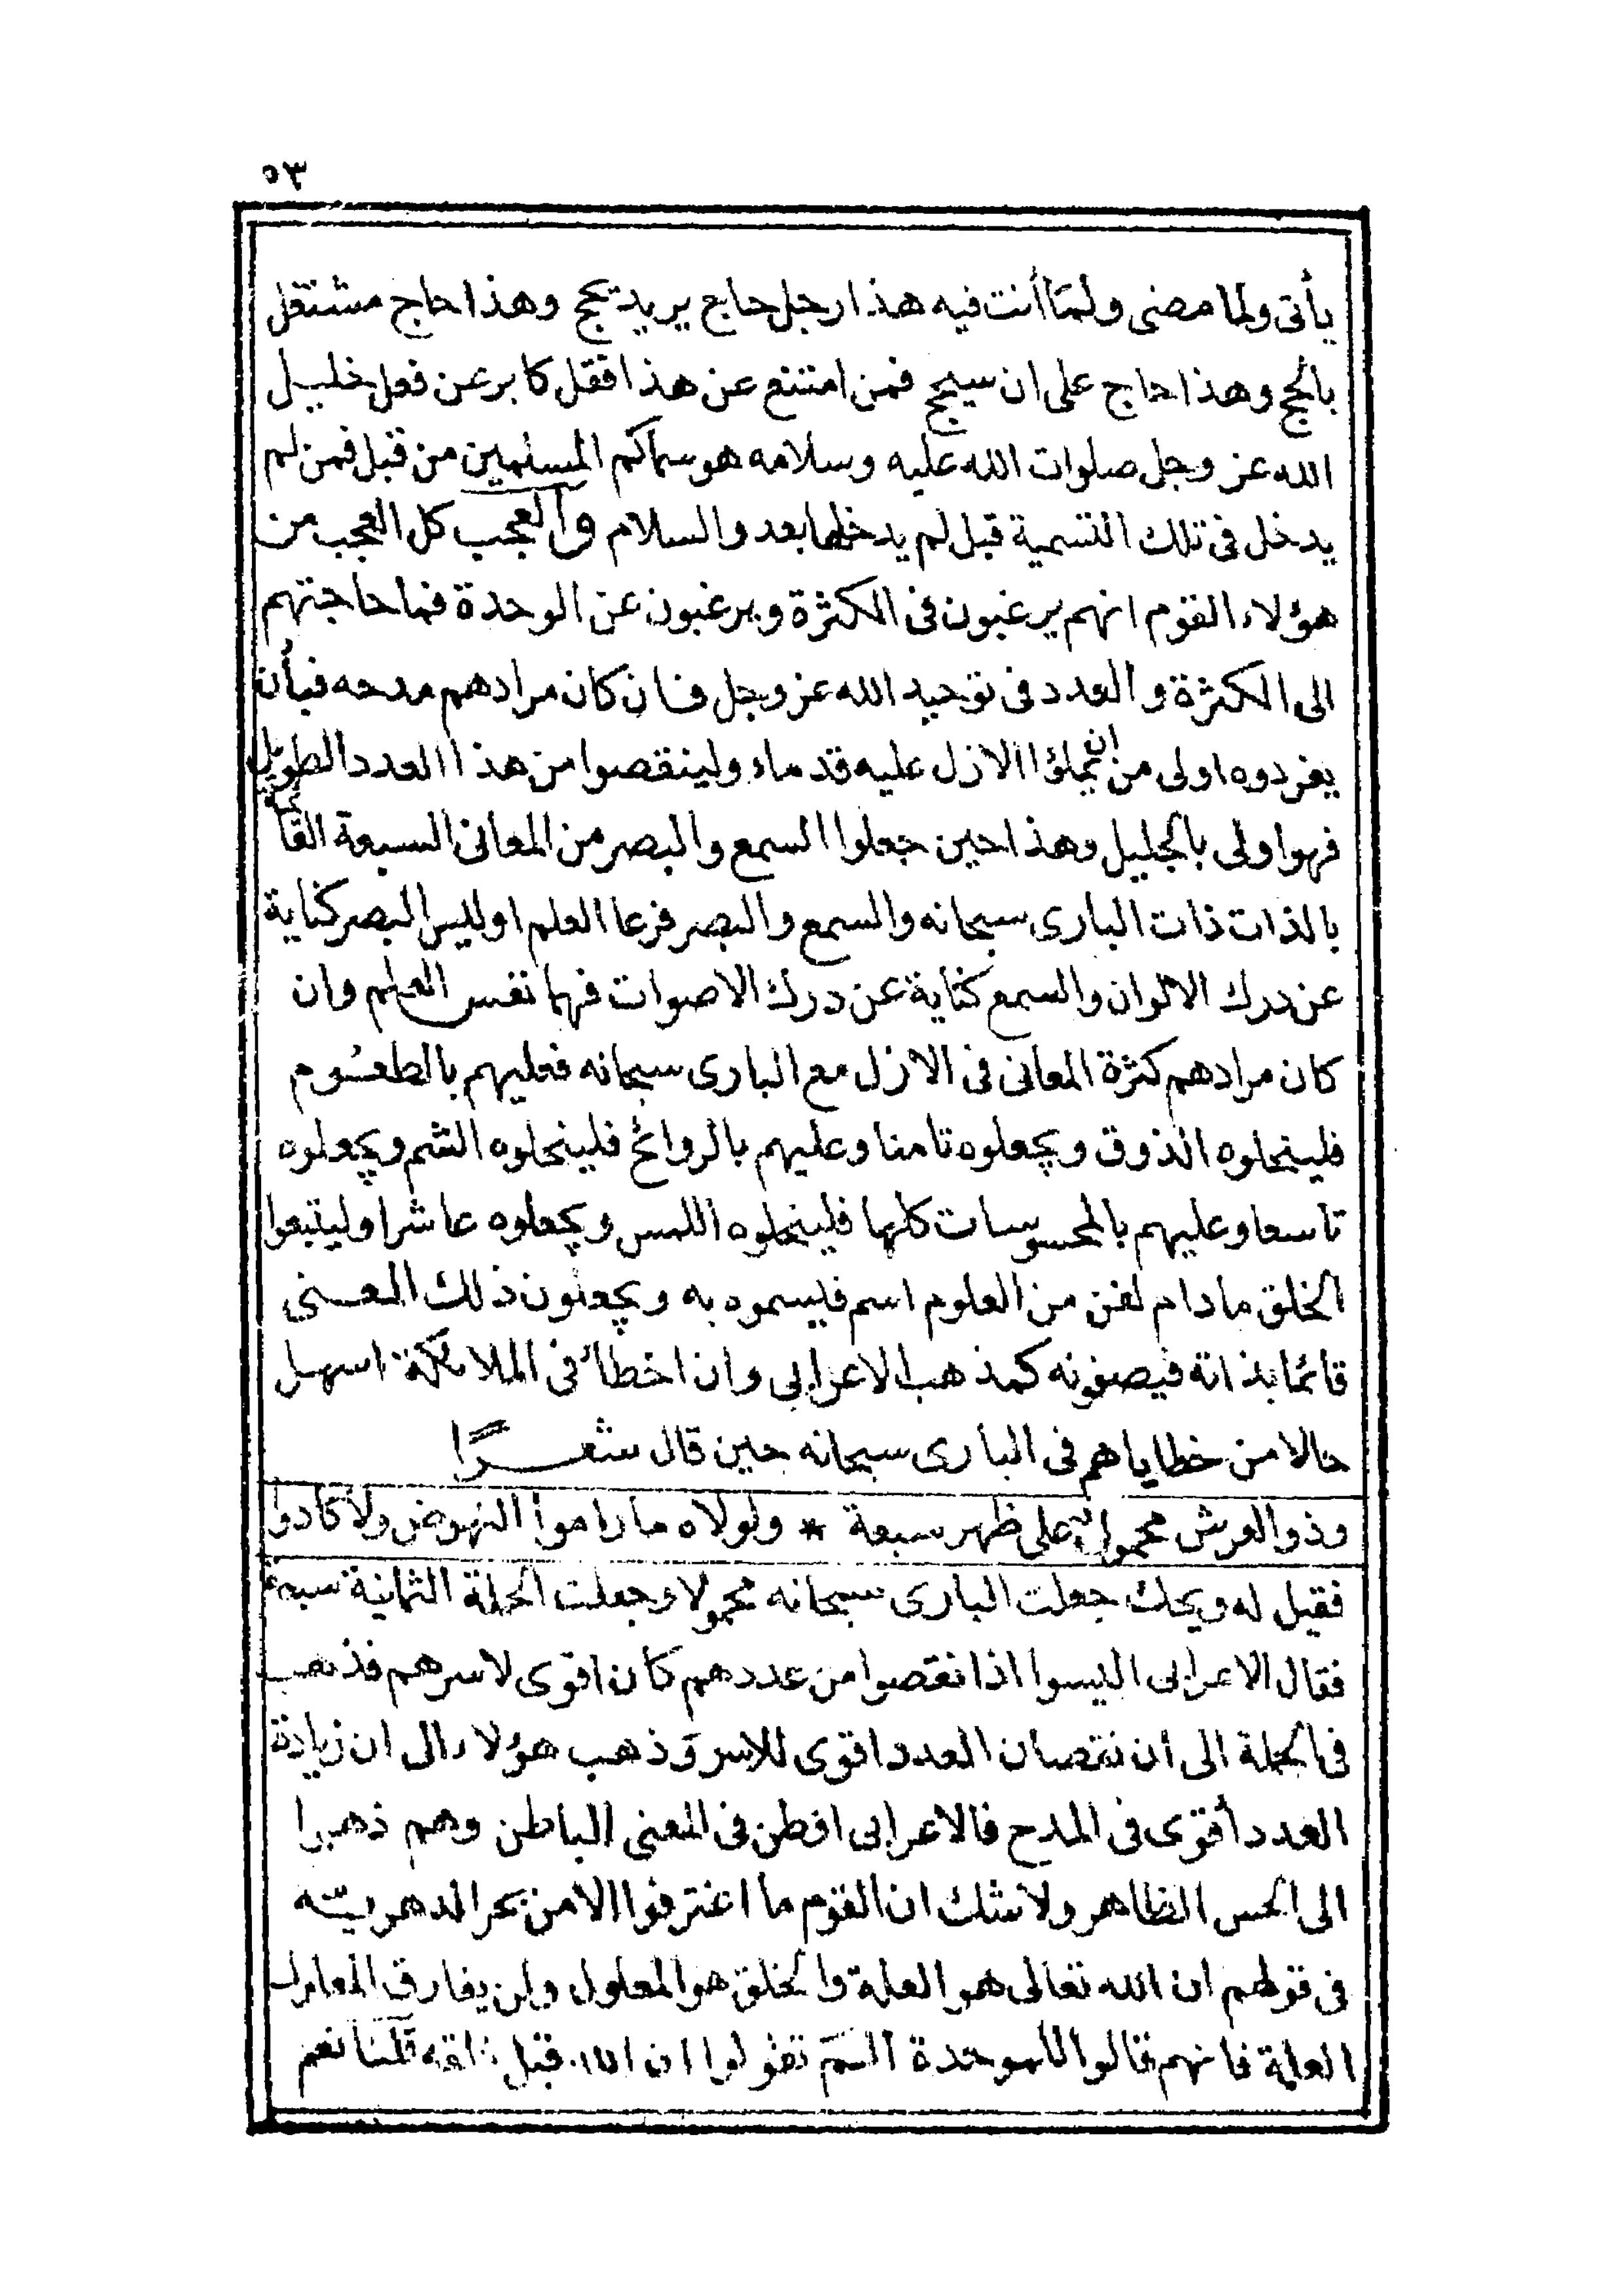 ٥٣
يأتى ولما مضى ولمّا أنت فيه هذا رجل حاج يريد يحج وهذا حاج مشتغل
بالحج وهذا حاج على ان سيحج فمن امتنع عن هذا فقل كابر عن فعل خليل
الله عز وجل صلوات الله عليه وسلامه هو سماكم المسلمين من قبل فمن لم
يدخل فى تلك التسمية قبل لم يدخلها بعد والسلام والعجب كل العجب من
هؤلاء القوم انهم يرغبون فى الكثرة ويرغبون عن الوحدة فما حاجتهم
الى الكثرة والعدد فى توحيد الله عز وجل فان كان مرادهم مدحه فبأن
يفردوه اولى من ان يملؤا الازل عليه قدماء ولينقصوا من هذا العدد الطويل
فهو اولى بالجليل وهذا حين جعلوا السمع والبصر من المعانى السبعة القائمة
بالذات ذات البارى سبحانه والسمع والبصر فرعا العلم اوليس البصر كناية
عن درك الالوان والسمع كناية عن درك الاصوات فهما نفس العلم وان
كان مرادهم كثرة المعانى فى الازل مع البارى سبحانه فعليهم بالطعُوم
فلينحلوه الذوق ويجعلوه ثامنا وعليهم بالروائح فلينحلوه الشم ويجعلوه
تاسعا وعليهم بالمحسوسات كلها فلينحلوه اللمس ويجعلوه عاشرا وليتبعوا
الخلق مادام لفن من العلوم اسم فليسموه به ويجعلون ذلك المعنى
قائما بذاته فيصفونه كمذهب الاعرابى وان اخطأ فى الملائكة اسهل
حالا من خطاياهم فى البارى سبحانه حين قال شعرًا
وذو العرش محمول على ظهر سبعة * ولولاه ما راموا النهوض ولا كادوا
فقيل له ويحك جعلت البارى سبحانه محمولا وجعلت الحملة الثمانية سبعة
فقال الاعرابى اليسوا اذا نقصوا من عددهم كان اقوى لاسرهم فذهب
فى الحملة الى أن نقصان العدد اقوى للاسر وذهب هؤلاء الى ان زيادة
العدد أقوى فى المدح فالاعرابى افطن فى المعنى الباطن وهم ذهبوا
الى الحس الظاهر ولا شك ان القوم ما اغترفوا الا من بحر الدهرية
فى قولهم ان الله تعالى هو العلة والخلق هو المعلول ولن يفارق المعلول
العلة فانهم قالوا للموحدة الستم تقولوا ان الله قبل خلقه قلنا نعم